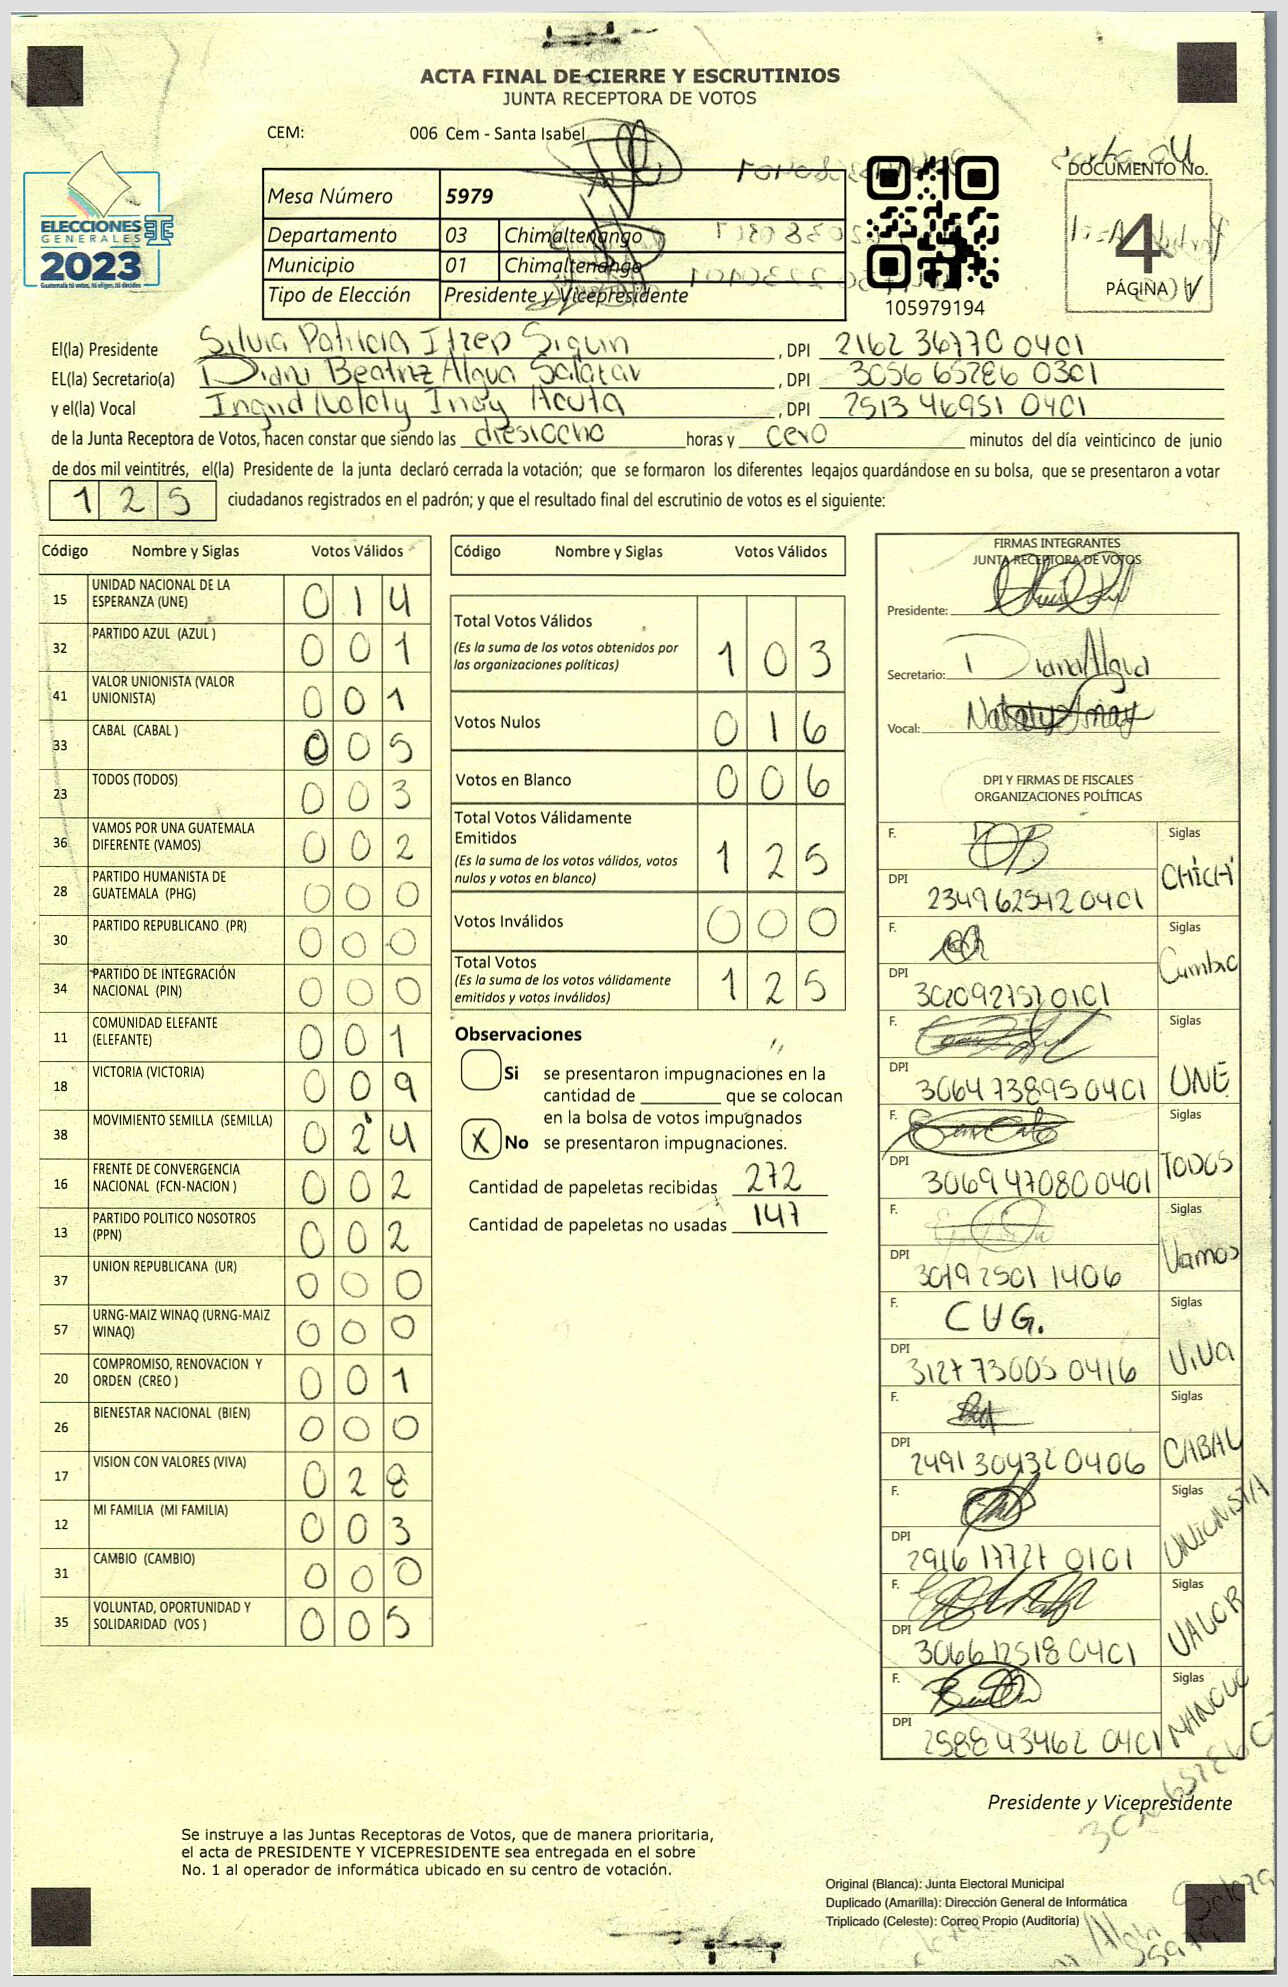 ACTA FINAL DE CIERRE Y ESCRUTINIOS
JUNTA RECEPTORA DE VOTOS
CEM: 006 Cem - Santa Isabel
ELECCIONES
GENERALES
2023
Guatemala tú votas, tú eliges, tú decides
Mesa Número 5979
Departamento 03 Chimaltenango
Municipio 01 Chimaltenango
Tipo de Elección Presidente y Vicepresidente
105979194
DOCUMENTO No.
4
PÁGINA 1
El(la) Presidente Silvia Patricia Itzep Siquin, DPI 2162 36770 0401
EL(la) Secretario(a) Diana Beatriz Algua Salazar, DPI 3056 65286 0301
y el(la) Vocal Ingrid Nataly Inay Acuta, DPI 2513 46951 0401
de la Junta Receptora de Votos, hacen constar que siendo las diesiocho horas y cero minutos del día veinticinco de junio
de dos mil veintitrés, el(la) Presidente de la junta declaró cerrada la votación; que se formaron los diferentes legajos guardándose en su bolsa, que se presentaron a votar
1 2 5 ciudadanos registrados en el padrón; y que el resultado final del escrutinio de votos es el siguiente:
Código Nombre y Siglas Votos Válidos
15 UNIDAD NACIONAL DE LA ESPERANZA (UNE) 0 1 4
32 PARTIDO AZUL (AZUL ) 0 0 1
41 VALOR UNIONISTA (VALOR UNIONISTA) 0 0 1
33 CABAL (CABAL ) 0 0 5
23 TODOS (TODOS) 0 0 3
36 VAMOS POR UNA GUATEMALA DIFERENTE (VAMOS) 0 0 2
28 PARTIDO HUMANISTA DE GUATEMALA (PHG) 0 0 0
30 PARTIDO REPUBLICANO (PR) 0 0 0
34 PARTIDO DE INTEGRACIÓN NACIONAL (PIN) 0 0 0
11 COMUNIDAD ELEFANTE (ELEFANTE) 0 0 1
18 VICTORIA (VICTORIA) 0 0 9
38 MOVIMIENTO SEMILLA (SEMILLA) 0 2 4
16 FRENTE DE CONVERGENCIA NACIONAL (FCN-NACION ) 0 0 2
13 PARTIDO POLITICO NOSOTROS (PPN) 0 0 2
37 UNION REPUBLICANA (UR) 0 0 0
57 URNG-MAIZ WINAQ (URNG-MAIZ WINAQ) 0 0 0
20 COMPROMISO, RENOVACION Y ORDEN (CREO ) 0 0 1
26 BIENESTAR NACIONAL (BIEN) 0 0 0
17 VISION CON VALORES (VIVA) 0 2 8
12 MI FAMILIA (MI FAMILIA) 0 0 3
31 CAMBIO (CAMBIO) 0 0 0
35 VOLUNTAD, OPORTUNIDAD Y SOLIDARIDAD (VOS ) 0 0 5
Código Nombre y Siglas Votos Válidos
Total Votos Válidos 1 0 3
(Es la suma de los votos obtenidos por
las organizaciones políticas)
Votos Nulos 0 1 6
Votos en Blanco 0 0 6
Total Votos Válidamente
Emitidos 1 2 5
(Es la suma de los votos válidos, votos
nulos y votos en blanco)
Votos Inválidos 0 0 0
Total Votos 1 2 5
(Es la suma de los votos válidamente
emitidos y votos inválidos)
Observaciones
Si se presentaron impugnaciones en la
cantidad de ________ que se colocan
en la bolsa de votos impugnados
X No se presentaron impugnaciones.
Cantidad de papeletas recibidas 272
Cantidad de papeletas no usadas 147
FIRMAS INTEGRANTES
JUNTA RECEPTORA DE VOTOS
Presidente:
Secretario: Diana Algua
Vocal: Nataly Inay
DPI Y FIRMAS DE FISCALES
ORGANIZACIONES POLÍTICAS
F. Siglas CHICHI
DPI 2349 62542 0401
F. Siglas Cambio
DPI 3020927570101
F. Siglas UNE
DPI 3064 73895 0401
F. Siglas TODOS
DPI 3069 470800401
F. Siglas Vamos
DPI 3019 2501 1406
F. C V G. Siglas VIVA
DPI 3127 73005 0416
F. Siglas CABAL
DPI 2491 30432 0406
F. Siglas UNIONISTA
DPI 2916 17727 0101
F. Siglas VALOR
DPI 3066 12518 0401
F. Siglas
DPI 2588 43462 0401
Presidente y Vicepresidente
Se instruye a las Juntas Receptoras de Votos, que de manera prioritaria,
el acta de PRESIDENTE Y VICEPRESIDENTE sea entregada en el sobre
No. 1 al operador de informática ubicado en su centro de votación.
Original (Blanca): Junta Electoral Municipal
Duplicado (Amarilla): Dirección General de Informática
Triplicado (Celeste): Correo Propio (Auditoría)